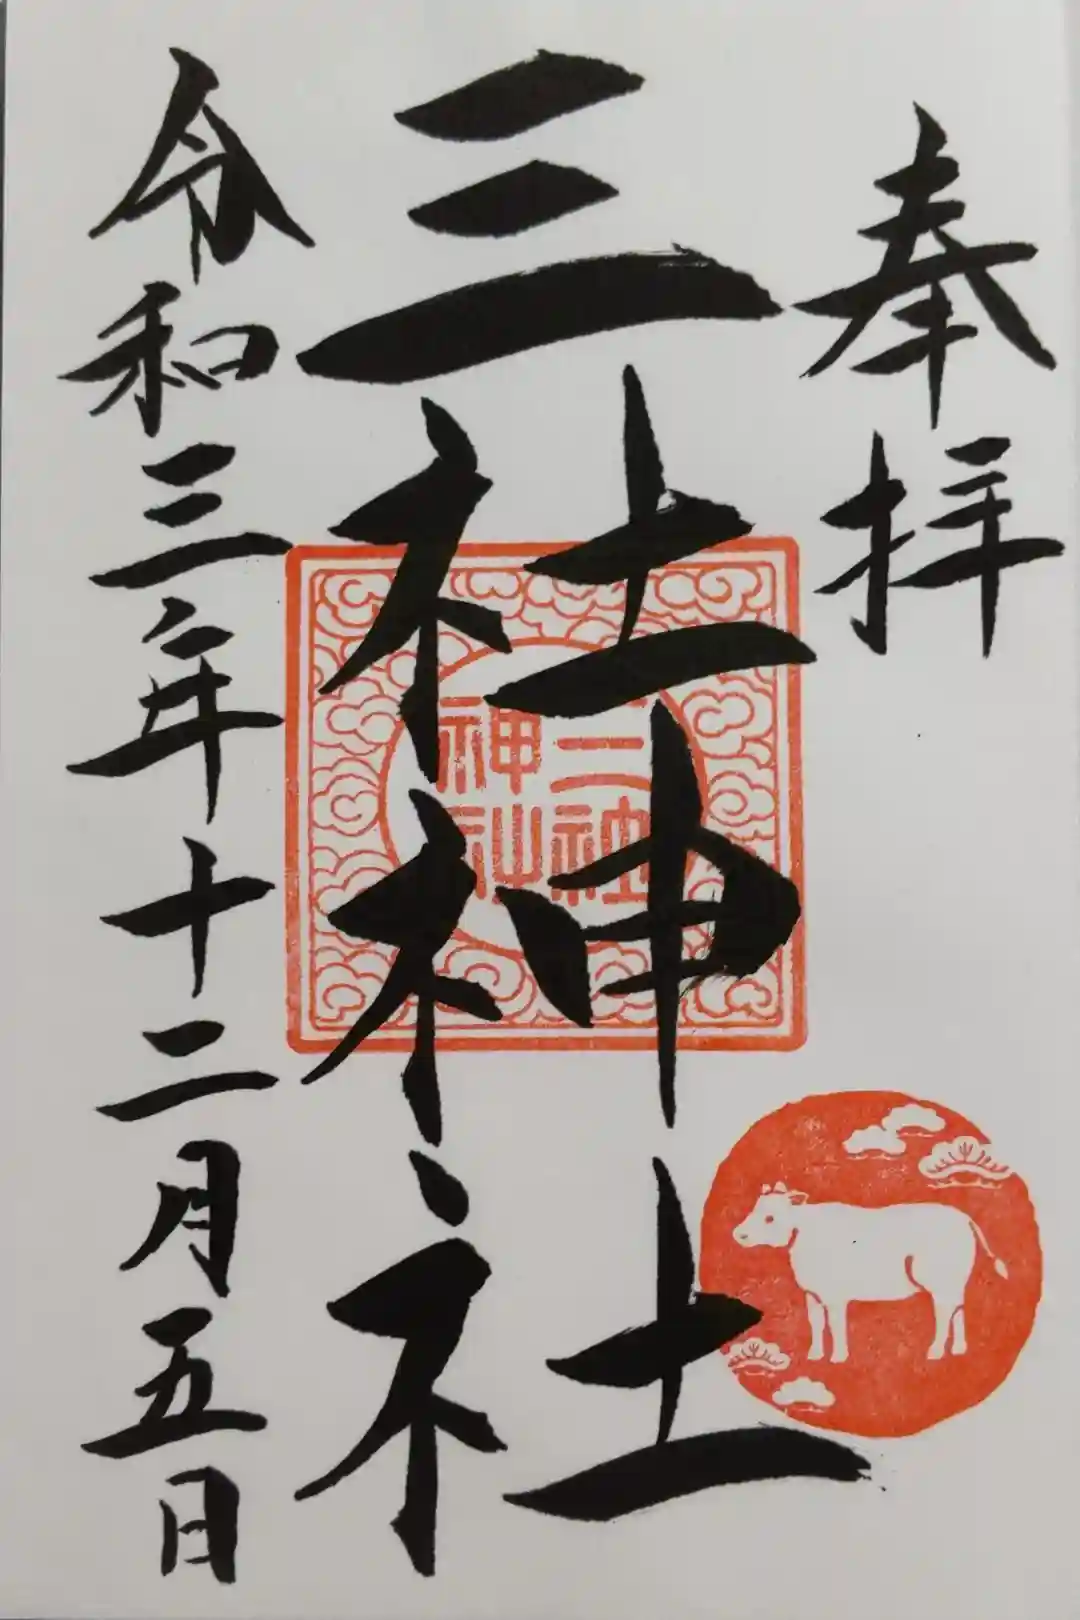 奉拝
三社神社
三社神社
令和三年十二月五日